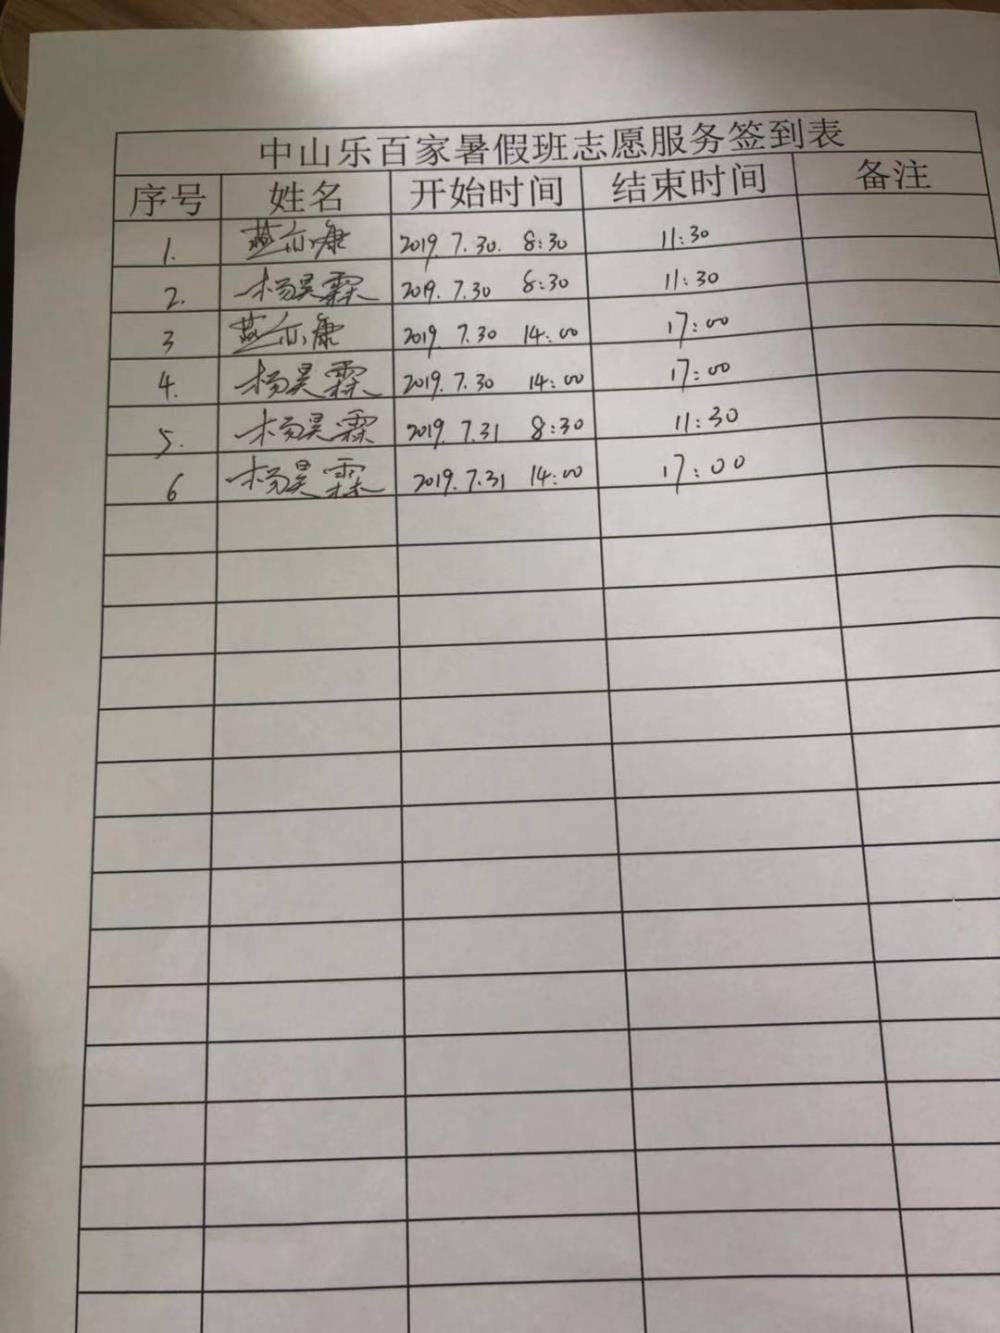 中山乐百家暑假班志愿服务签到表
序号 姓名 开始时间 结束时间 备注
1. 康 2019.7.30. 8:30 11:30
2. 杨昊霖 2019.7.30 8:30 11:30
3 康 2019.7.30 14:00 17:00
4. 杨昊霖 2019.7.30 14:00 17:00
5. 杨昊霖 2019.7.31 8:30 11:30
6 杨昊霖 2019.7.31 14:00 17:00